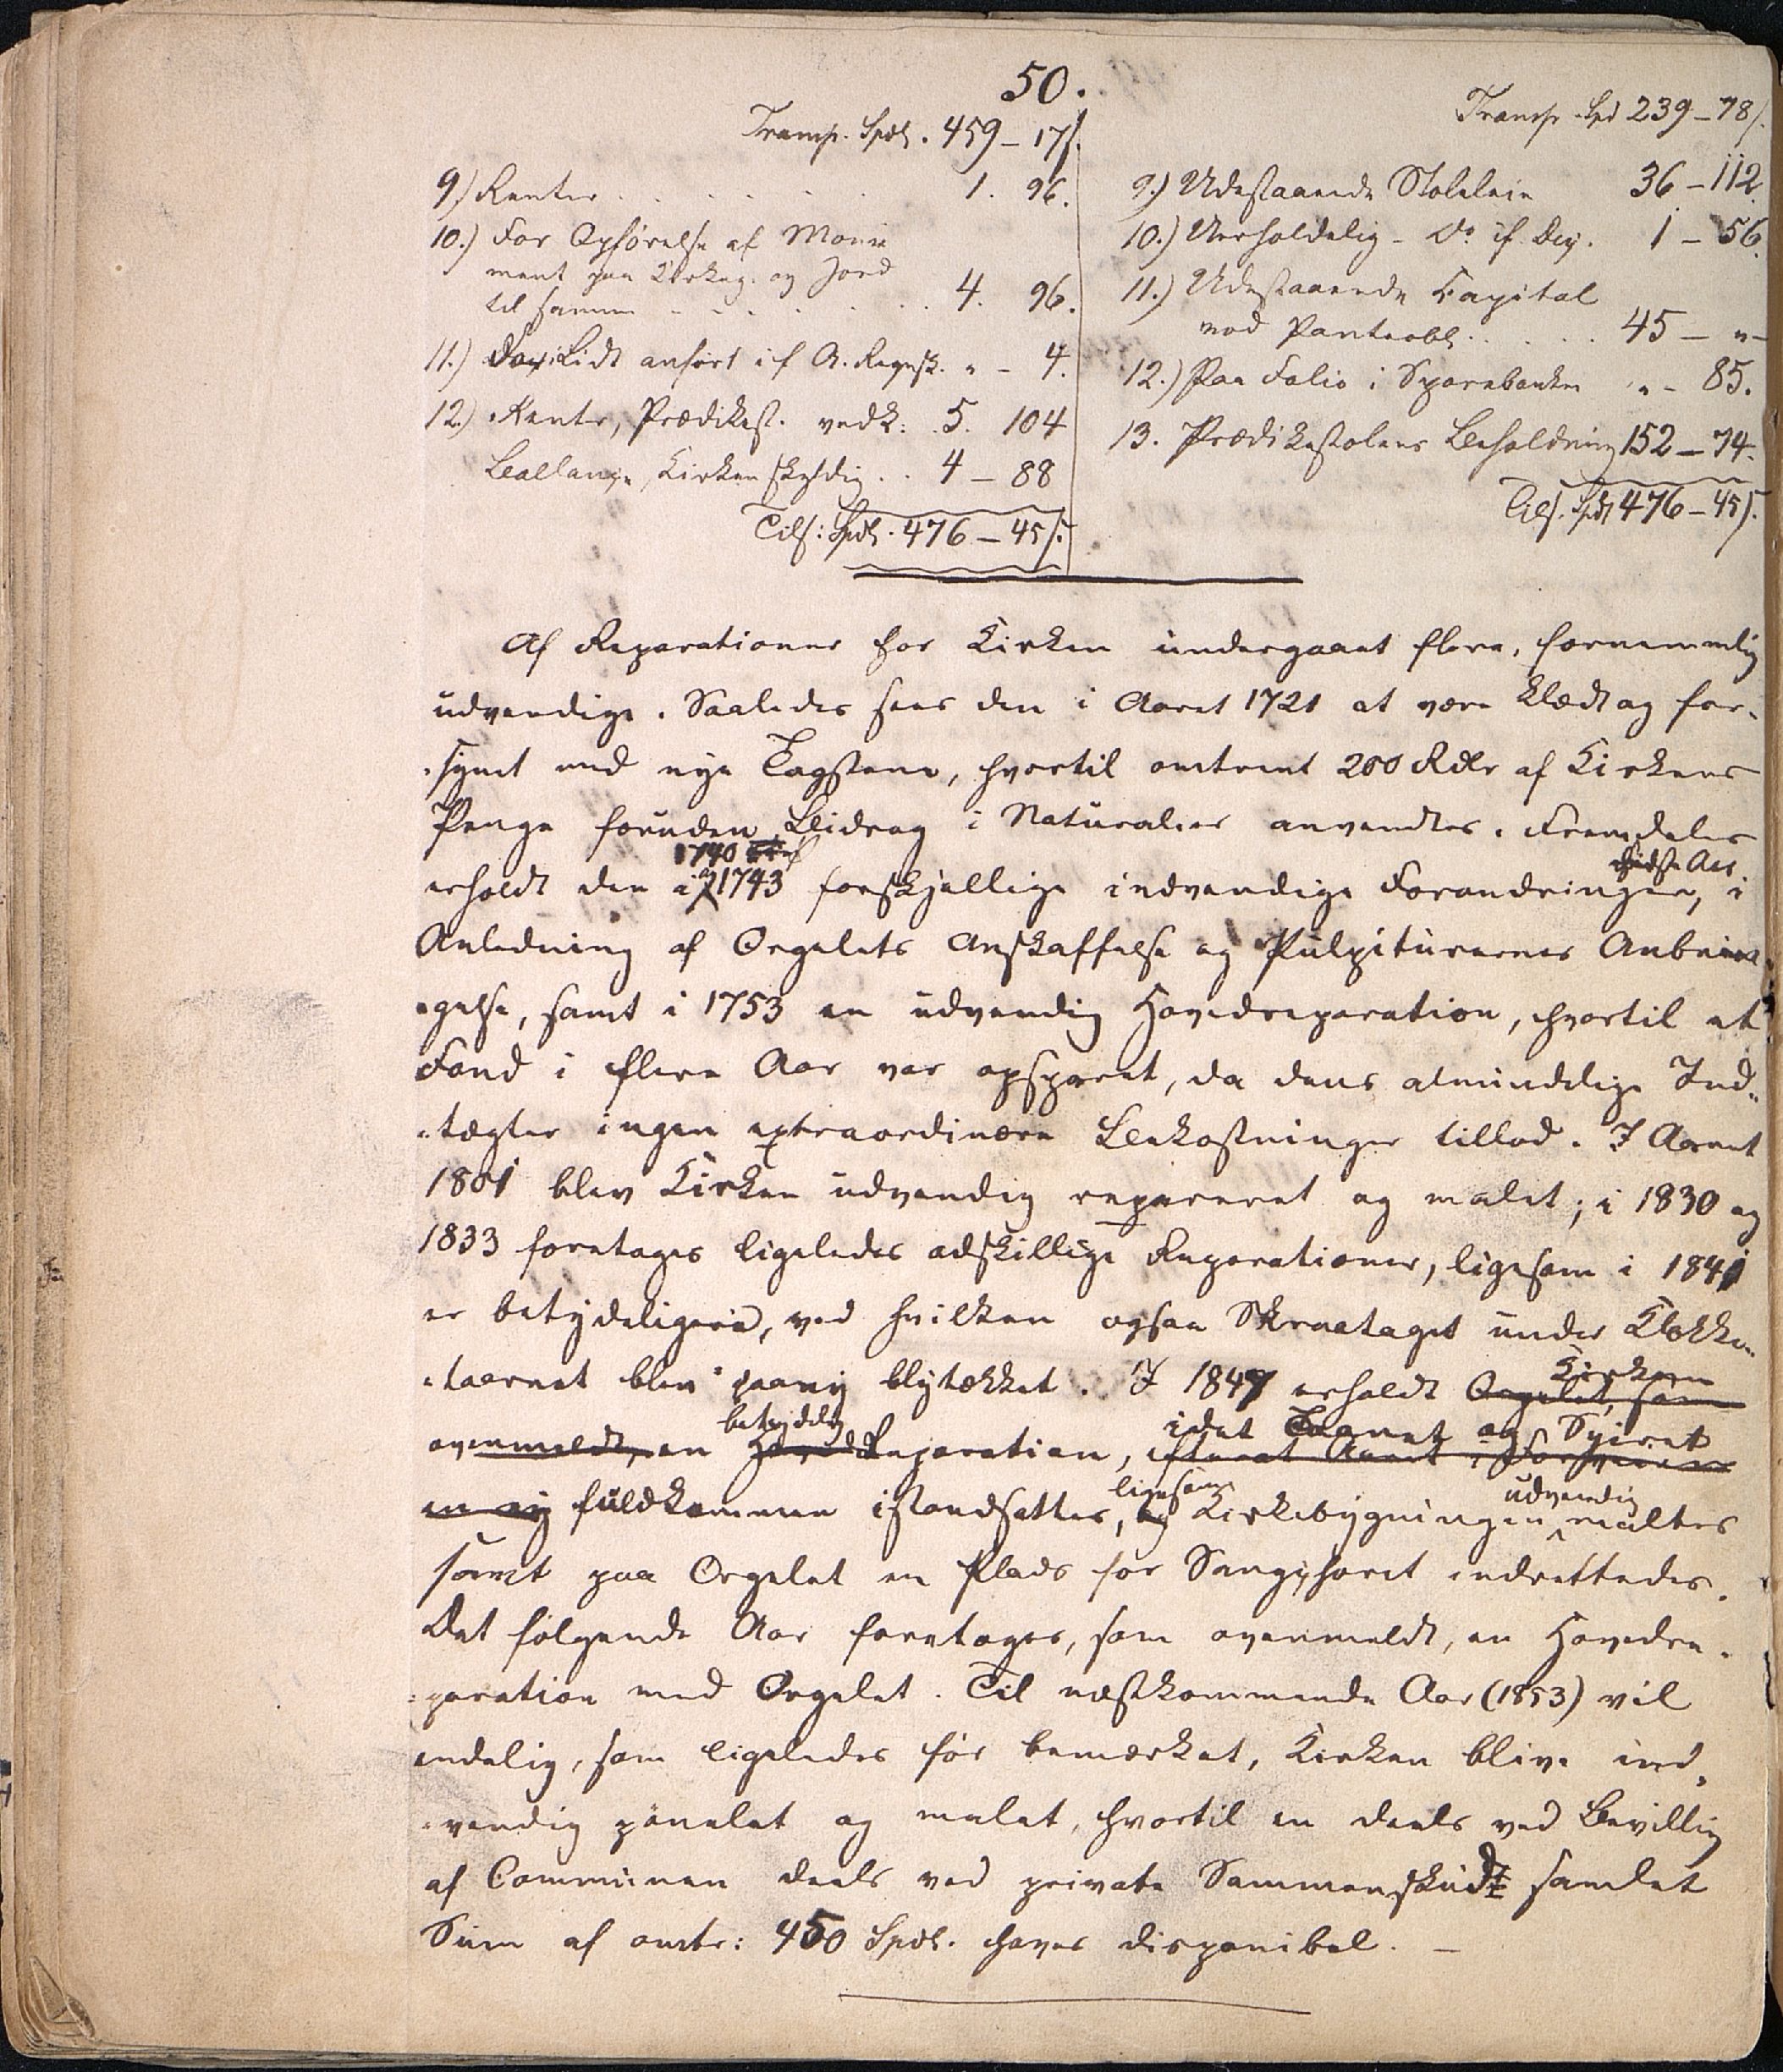 50.
Transp. Spdl. 459 - 17 s.
9.) Renter . . . . . . 1. 96.
10.) For Opførelse af Monu
ment paa Kirkeg. og Jord
til samme . . . . . . 4. 96.
11.) For Lidt anført if A. Regnsk. " - 4.
12.) Rente, Prædikest. vedk: 5. 104
Ballance, Kirken skyldig . . 4 - 88
Tils: Spdl. 476 - 45 s.
Transp. Spd 239 - 78 s.
9.) Udestaaende Stoleleie 36 - 112.
10.) Uerholdelig - Do if. Dec. 1 - 56.
11.) Udestaaende Kapital
mod Panteobl. . . . . 45 - " -
12.) Paa Folio i Sparebanken " - 85.
13. Prædikestolens Beholdning 152 - 74.
Tils. Spdl 476 - 45 s.
Af Reparationer har Kirken undergaaet flere, fornemmelig
udvendige. Saaledes sees den i Aaret 1721 at være klædt og for-
synet med nye Tagstene, hvortil omtrent 200 Rdlr af Kirkens
Penge foruden Bidrag i Naturalier anvendtes. Fremdeles
1740
sidste Aar
erholdt den i og 1743 forskjellige indvendige Forandringer, i
Anledning af Orgelets Anskaffelse og Pulpiturernes Anbrin-
gelse, samt i 1753 en udvendig Hovedreparation, hvortil et
Fond i flere Aar var opsparet, da dens almindelige Ind-
tægter ingen extraordinære Bekostninger tillod. I Aaret
1801 blev Kirken udvendig repareret og malet; i 1830 og
1833 foretages ligeledes adskillige Reparationer, ligesom i 1841
er betydeligere, ved hvilken ogsaa Skraataget under Klokke-
taarnet blev paany blytækket. I 1847 erholdt Orgelet, som
Kirken
ovenmeldt, en Hoved Reparation, efterat Aaret i Forveien
betydelig
idet Taarnet og Spiret
en ny fuldkommen istandsattes, og Kirkebygningen maltes
ligesom
udvendig
samt paa Orgelet en Plads for Sangchoret indrettedes.
Det følgende Aar foretages, som ovenmeldt, en Hovedre-
paration med Orgelet. Til næstkommende Aar (1853) vil
endelig, som ligeledes før bemærket, Kirken blive ind-
vendig panelet og malet, hvortil en deels ved Bevilling
af Communen deels ved private Sammenskudt samlet
Sum af omtr: 450 Spdl. haves disponibel. -